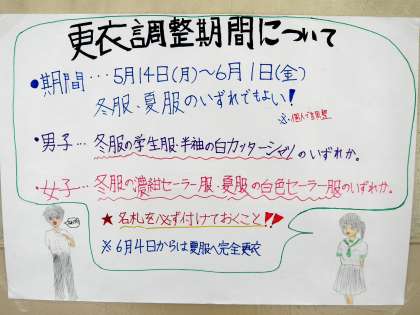 更衣調整期間について
●期間…5月14日(月)～6月1日(金)
冬服・夏服のいずれでもよい!
●男子…冬服の学生服・半袖の白カッターシャツのいずれか。
●女子…冬服の濃紺セーラー服・夏服の白色セーラー服のいずれか。
★名札を必ず付けておくこと!!
※6月4日からは夏服へ完全更衣